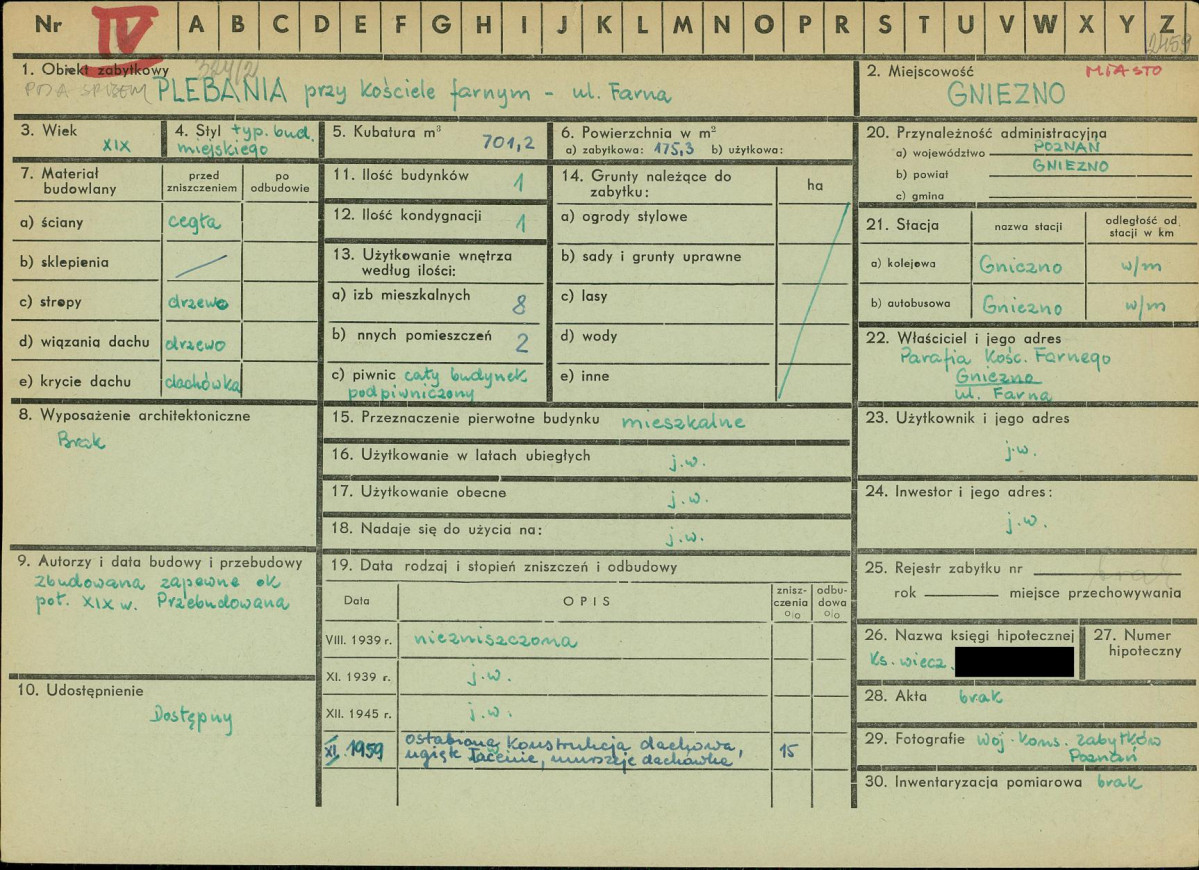 Nr IV A B C D E F G H I J K L M N O P R S T U V W X Y Z
2459
1. Obiekt zabytkowy
PLEBANIA przy Kościele farnym - ul. Farna
2. Miejscowość MIASTO
GNIEZNO
3. Wiek
XIX
4. Styl typ. bud.
miejskiego
5. Kubatura m³
701,2
6. Powierzchnia w m²
a) zabytkowa: 175,3 b) użytkowa:
7. Materiał
budowlany
przed
zniszczeniem
po
odbudowie
a) ściany cegła
b) sklepienia
c) stropy drzewo
d) wiązania dachu drzewo
e) krycie dachu dachówka
8. Wyposażenie architektoniczne
Brak
9. Autorzy i data budowy i przebudowy
Zbudowana zapewne ok
poł. XIX w. Przebudowana
10. Udostępnienie
Dostępny
11. Ilość budynków 1
12. Ilość kondygnacji 1
13. Użytkowanie wnętrza
według ilości:
a) izb mieszkalnych 8
b) nnych pomieszczeń 2
c) piwnic cały budynek
podpiwniczony
14. Grunty należące do
zabytku:
ha
a) ogrody stylowe
b) sady i grunty uprawne
c) lasy
d) wody
e) inne
15. Przeznaczenie pierwotne budynku mieszkalne
16. Użytkowanie w latach ubiegłych j.w.
17. Użytkowanie obecne j.w.
18. Nadaje się do użycia na: j.w.
19. Data rodzaj i stopień zniszczeń i odbudowy
Data
OPIS
znisz-
czenia
o/o
odbu-
dowa
o/o
VIII. 1939 r. niezniszczona
XI. 1939 r. j.w.
XII. 1945 r. j.w.
XI. 1959 osłabiona konstrukcja dachowa, 15
ugięte łacenie, murszeje dachówka
20. Przynależność administracyjna
a) województwo POZNAŃ
b) powiat GNIEZNO
c) gmina
21. Stacja
nazwa stacji
odległość od
stacji w km
a) kolejowa Gniezno w/m
b) autobusowa Gniezno w/m
22. Właściciel i jego adres
Parafia Kośc. Farnego
Gniezno
ul. Farna
23. Użytkownik i jego adres
j.w.
24. Inwestor i jego adres:
j.w.
25. Rejestr zabytku nr brak
rok miejsce przechowywania
26. Nazwa księgi hipotecznej
Ks. wiecz.
27. Numer
hipoteczny
28. Akta brak
29. Fotografie Woj. Kons. Zabytków
Poznań
30. Inwentaryzacja pomiarowa brak